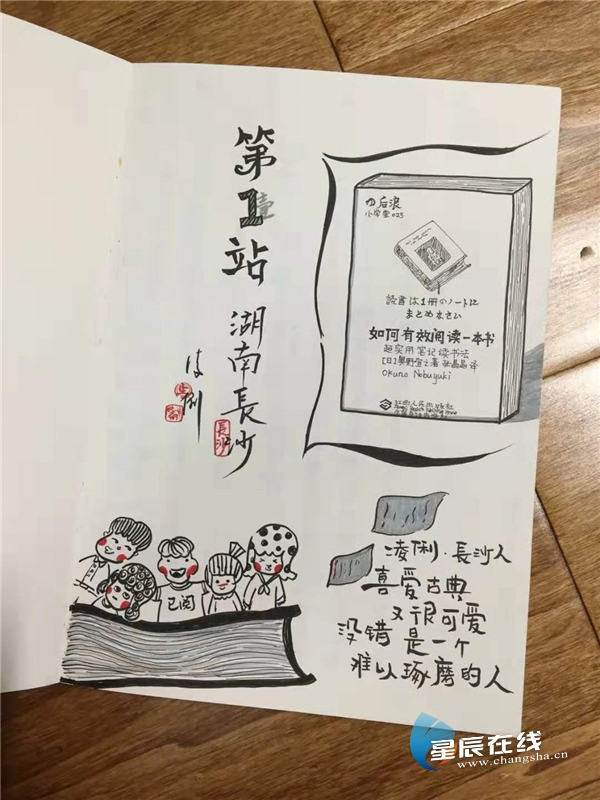 第1站
湖南長沙
凌俐
長沙
后浪
小学堂023
読書は1冊のノートに
まとめなさい
如何有效阅读一本书
超实用笔记读书法
[日]奥野宣之著 张晶晶译
Okuno Nobuyuki
江西人民出版社
已阅
凌俐·長沙人
喜爱古典
又很可爱
没错是一个
难以琢磨的人
星辰在线
www.changsha.cn